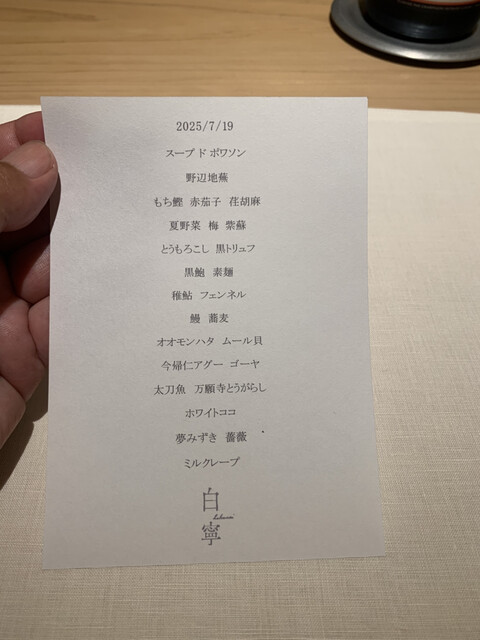 2025/7/19
スープ ド ポワソン
野辺地蕪
もち鰹 赤茄子 荏胡麻
夏野菜 梅 紫蘇
とうもろこし 黒トリュフ
黒鮑 素麺
稚鮎 フェンネル
鰻 蕎麦
オオモンハタ ムール貝
今帰仁アグー ゴーヤ
太刀魚 万願寺とうがらし
ホワイトココ
夢みずき 薔薇
ミルクレープ
白
寧